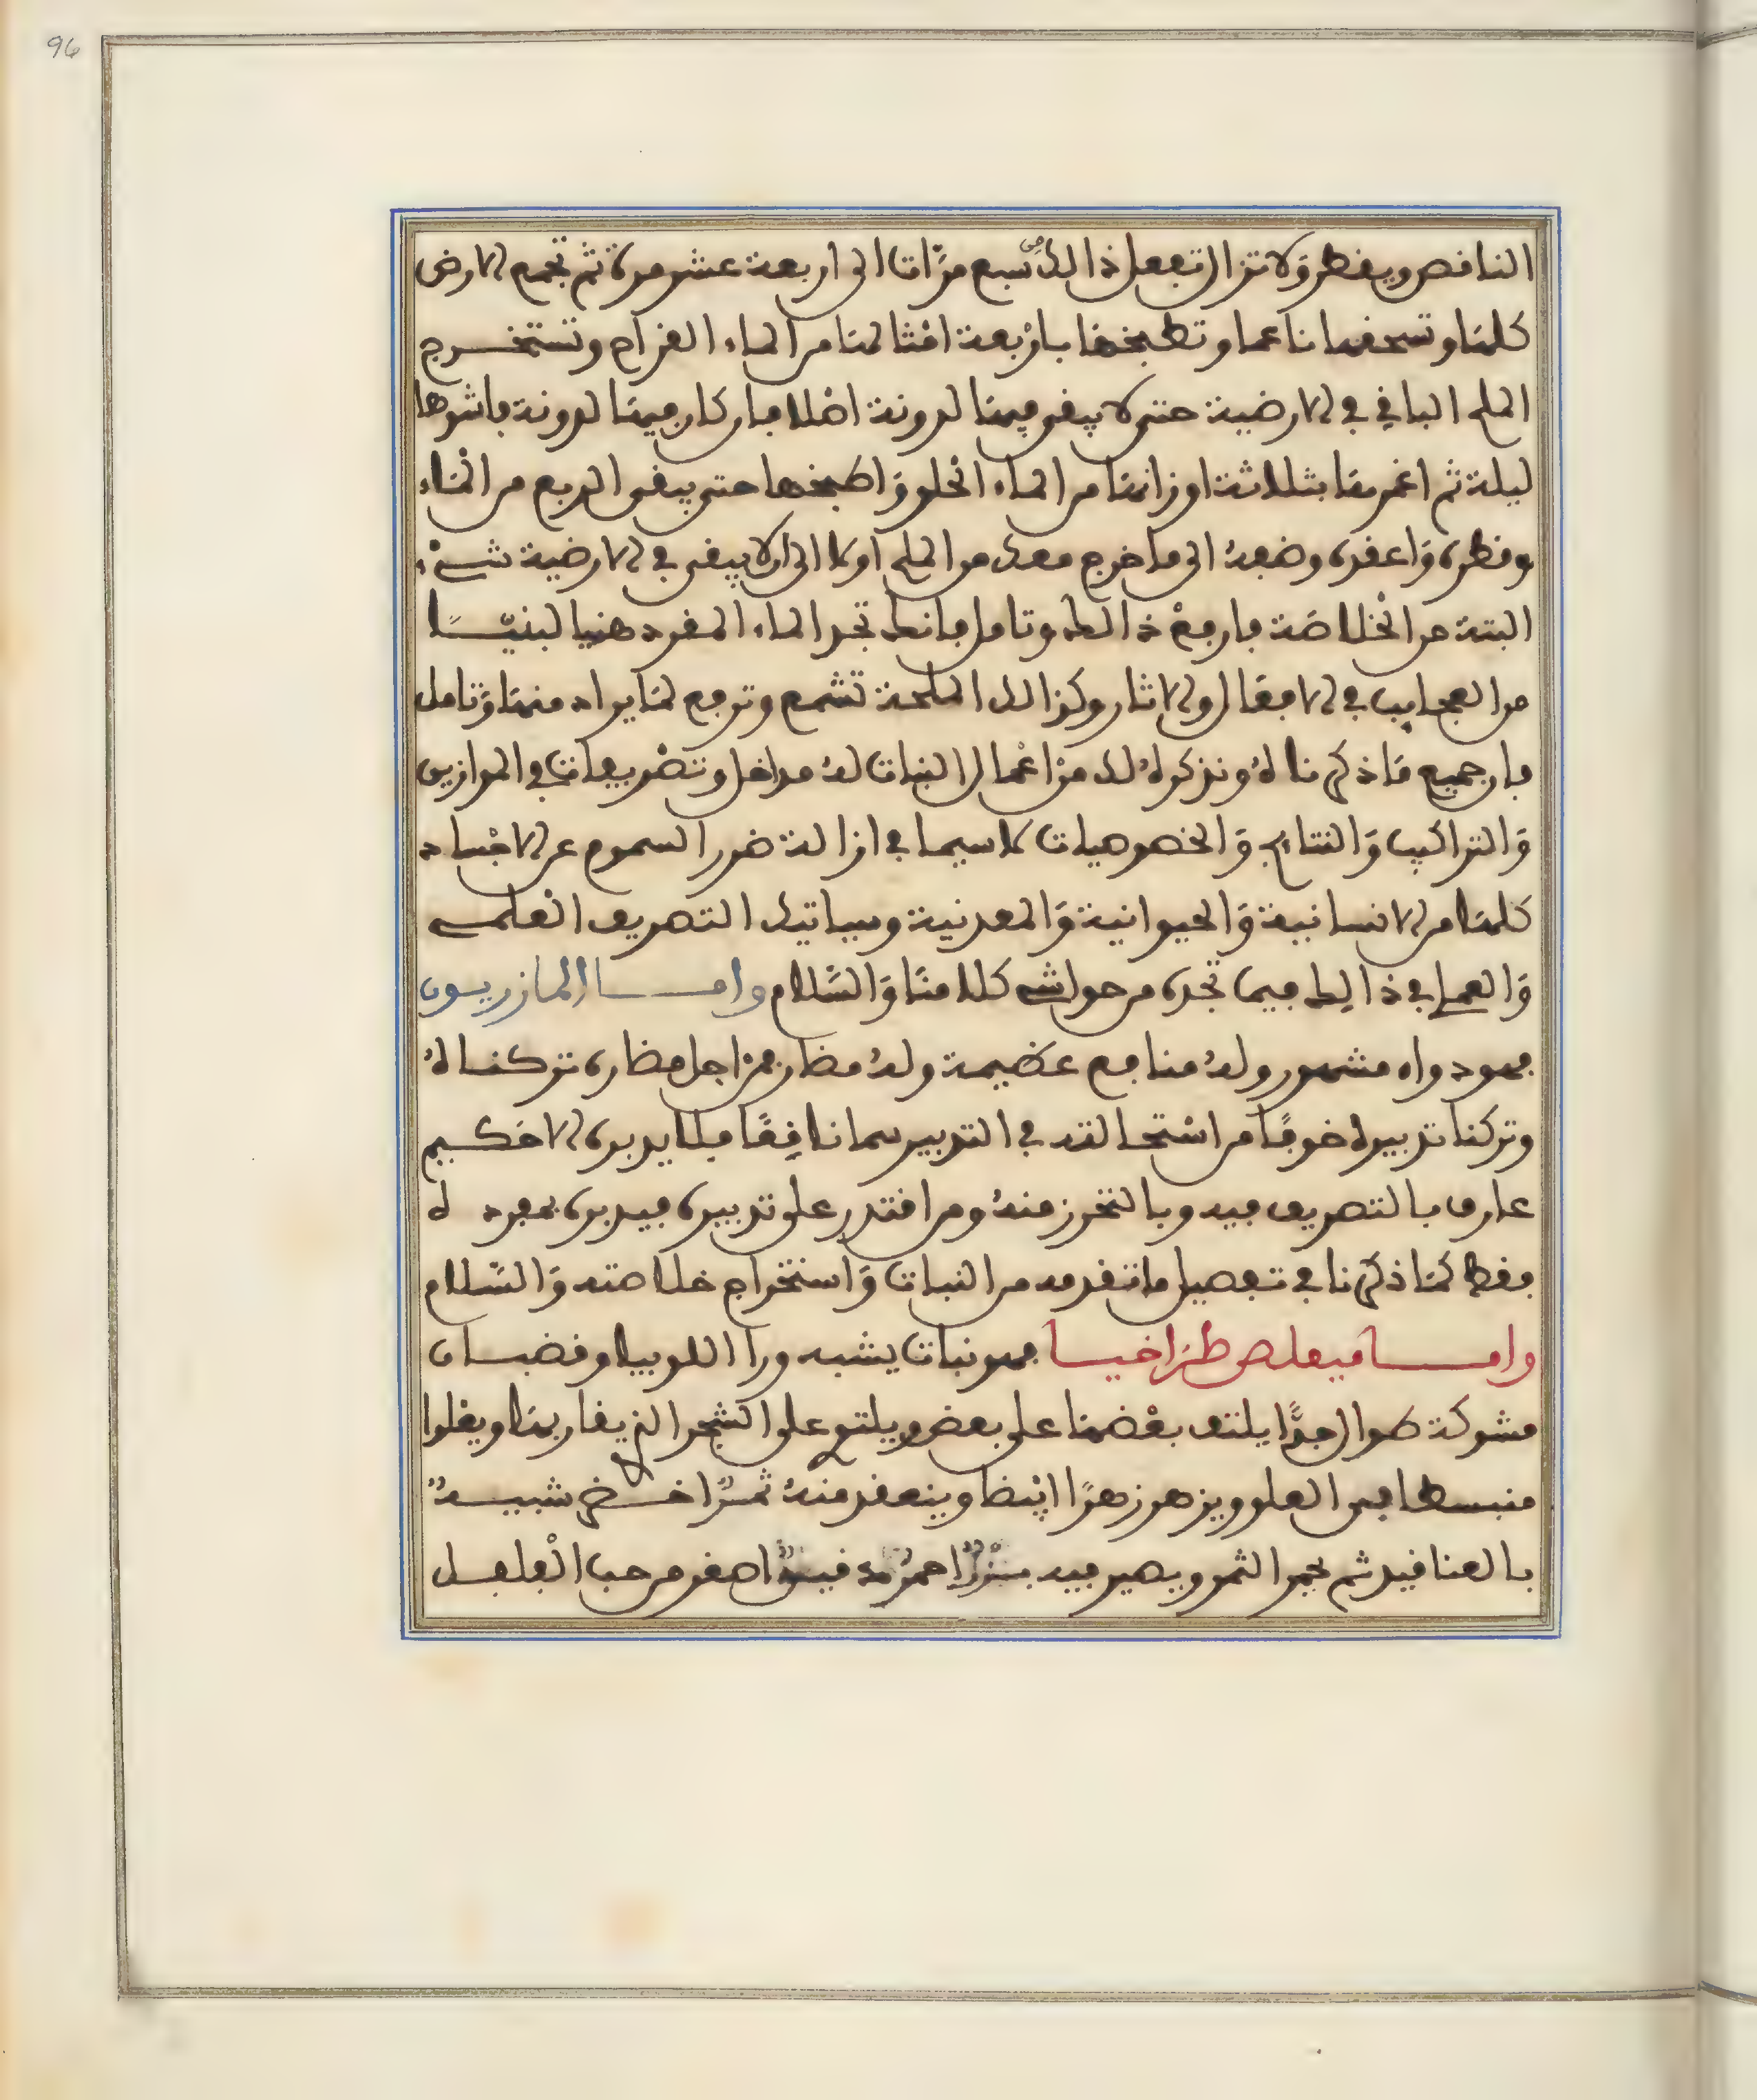 96
الناقص ويقطر ولا تزال تفعل ذالك من سبع مرات الى اربعة عشر مرة ثم تجمع الارض
كلها وتسحقها ناعما وتطبخها باربعة امثالها من الماء القراح وتستخرج
الملح الباقي في الارضية حتى لا يبقى فيها لدونة اصلا فان كان فيها لدونة فاشوها
ليلة ثم اغمرها بثلاثة اوزانها من الماء الحلو واطبخها حتى يبقى الربع من الماء
وقطره واعقده وضعه الى ما خرج معك من الملح اولا الى ان لا يبقى في الارضية شيء
البتة من الخلاصة فارفع ذالك وتامل فانك تجد الماء المفرد هنيا لبنيا
من العجايب في الافعال والاثار وكذالك الملحة تشمع وترفع لما يراد منها وتامل
فان جميع ما ذكرناه ونذكره لك من اعمال النبات له مداخل وتضريفات في الموازين
والتراكيب والنتايج والخصوصيات لا سيما في ازالة ضرر السموم عن الاجساد
كلها من الانسانية والحيوانية والمعدنية وسياتيك التصريف العلمي
والعملي في ذالك فيما تجده من حواشي كلامنا والسلام وامـــا المازريون
فهو دواء مشهور وله منافع عظيمة وله مضار فمن اجل مضاره تركناه
وتركنا تدبيره خوفا من استحالته في التدبير سما ناقعا فلا يدبره الا حكيم
عارف بالتصريف فيه وبالتحرز منه ومن اقتدر على تدبيره فيدبره بمفرده
فقط كما ذكرنا في تفصيل ما تقدمه من النبات واستخراج خلاصته والسلام
وامـــا ميعلص طراخيا فهو نبات يشبه ورق اللوبيا وقضبان
مشوكة طوال جدا يلتف بعضها على بعض ويلتف على الشجر الذي يقاربها ويعلوا
منبسطا من العلو ويزهر زهرا ابيضا وينعقد منه ثمر اخضر شبيه
بالعناقيد ثم يحمر الثمر ويصير فيه احمر اصغر من حب الفلفل